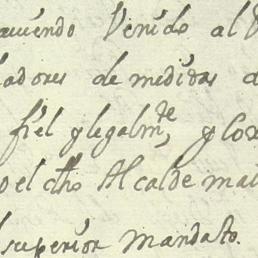 auiendo Venido al
adores de medidas a
fiel y legalmte, y
el dho Alcalde ma
superior mandato.